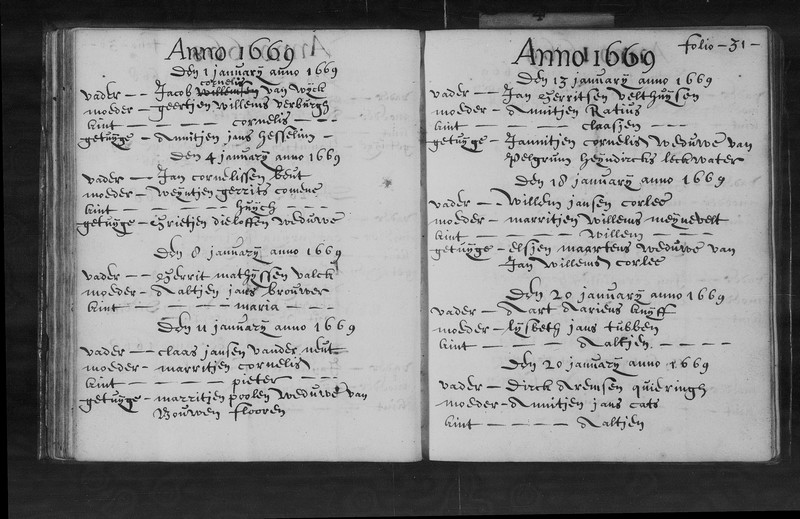 Anno 1669
Den 1 januarÿ anno 1669
cornelis
vader — Jacob willemsen van wÿck
moeder — geertjen willems verburgh
kint — cornelis —
getuÿge — Annitjen jans hesselun —
Den 4 januarÿ anno 1669
vader — Jan cornelissen beut
moeder — weÿntjen gerrits comene
kint — huÿch —
getuÿge — Grietjen dieloffen weduwe
Den 8 januarÿ anno 1669
vader — Gerrit mathÿssen valck
moeder — Aaltjen jans brouwer
kint — maria —
Den 11 januarÿ anno 1669
vader — claas jansen vander neut
moeder — marritjen cornelis
kint — pieter —
getuÿge — marritjen poolen weduwe van
Bouwen flooren
folio — 31 —
Anno 1669
Den 13 januarÿ anno 1669
vader — Jan Gerritsen velthuÿsen
moeder — Annitjen Ratius
kint — claasjen —
getuÿge — Jannitjen cornelis weduwe van
Pelgrum heÿndricks leckwater
Den 18 januarÿ anno 1669
vader — Willem jansen corlee
moeder — marritjen willems meÿnevelt
kint — Willem —
getuÿge — elsjen maartens weduwe van
Jan willems corlee
Den 20 januarÿ anno 1669
vader — Aart Ariens knÿff
moeder — lÿsbeth jans tubben
kint — Aaltjen —
Den 20 januarÿ anno 1669
vader — Dirck Aremsen quieringh
moeder — Annitjen jans cats
kint — Aaltjen